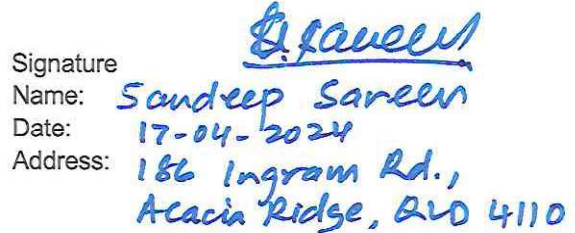 Signature S. Sareen
Name: Sandeep Sareen
Date: 17-04-2024
Address: 186 Ingram Rd.,
Acacia Ridge, QLD 4110